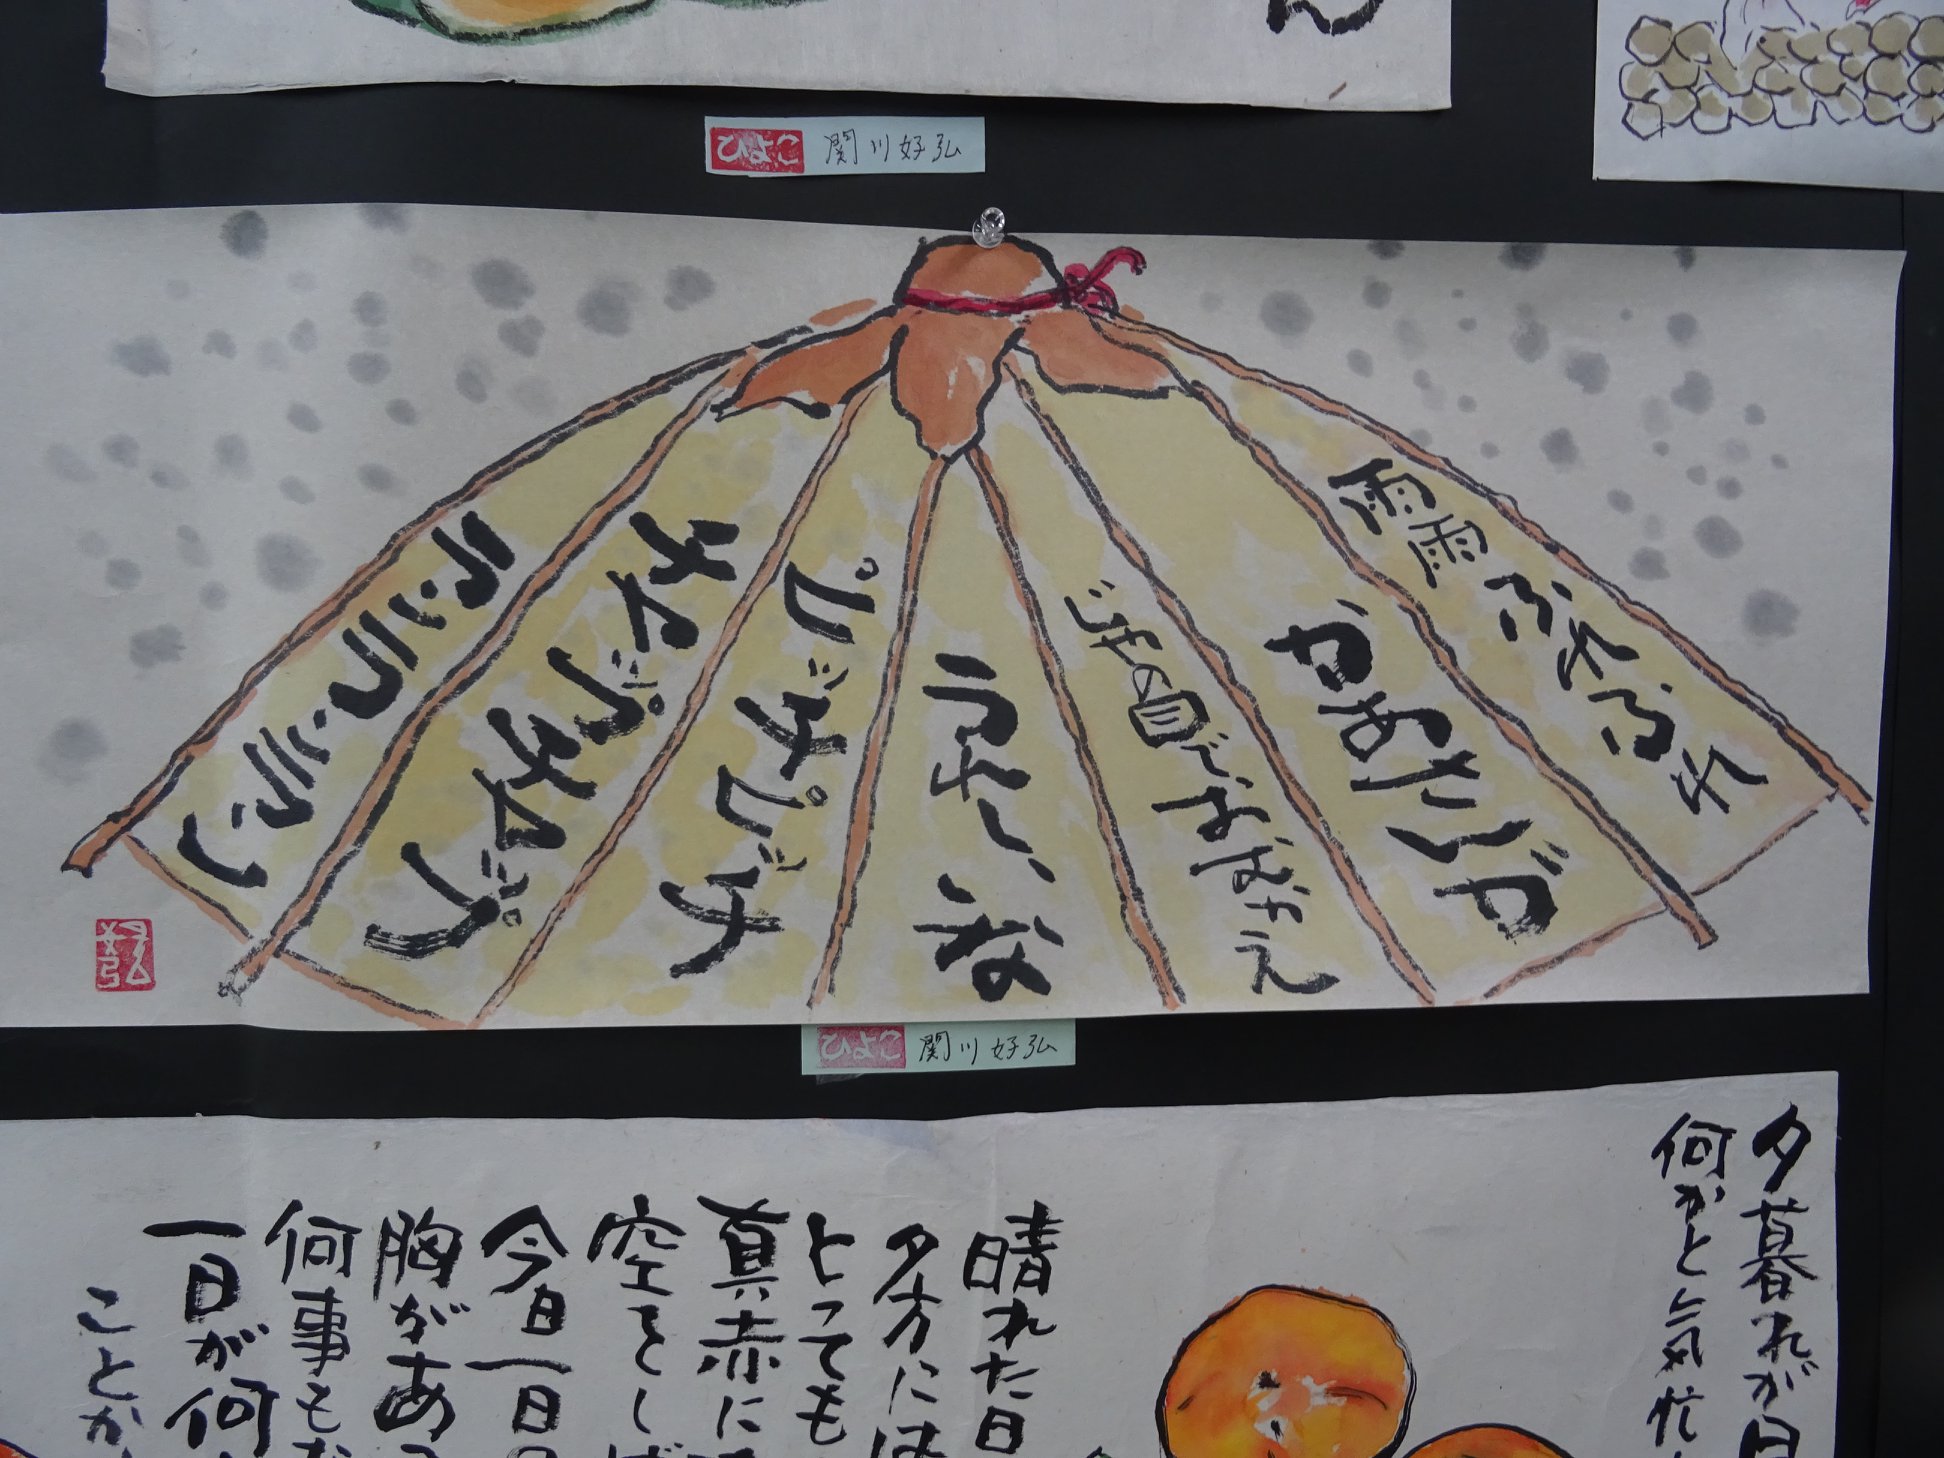 ん
ひよこ 関川好弘
雨雨ふれふれ
かあさんが
じゃの目でおむかえ
うれしいな
ピッチピッチ
チャップチャップ
ランランラン
好弘
ひよこ 関川好弘
夕暮れが日
何かと気忙
晴れた日
夕方には
とても
真赤に
空をしば
今日一日
胸があ
何事も
一日が何
ことか